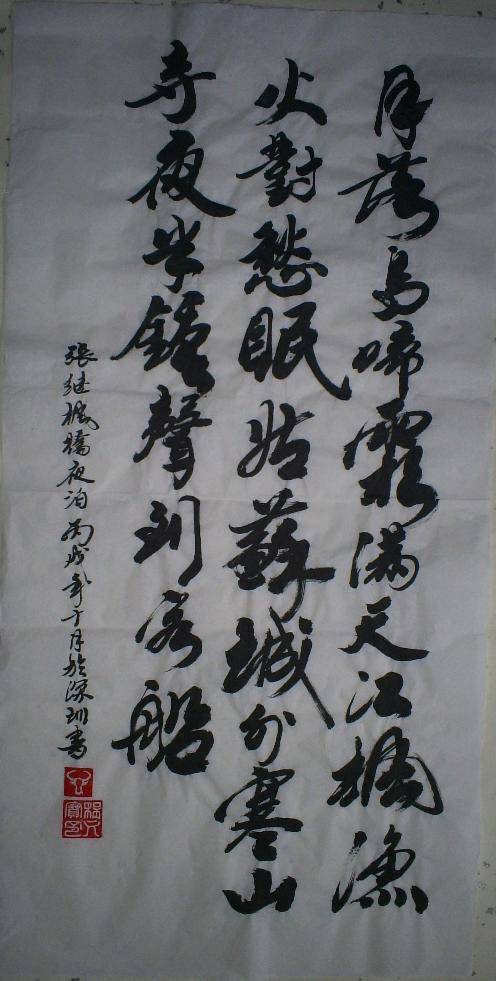 月落烏啼霜滿天江楓漁
火對愁眠姑蘇城外寒山
寺夜半鐘聲到客船
張继楓橋夜泊丙戌年十月於深圳書